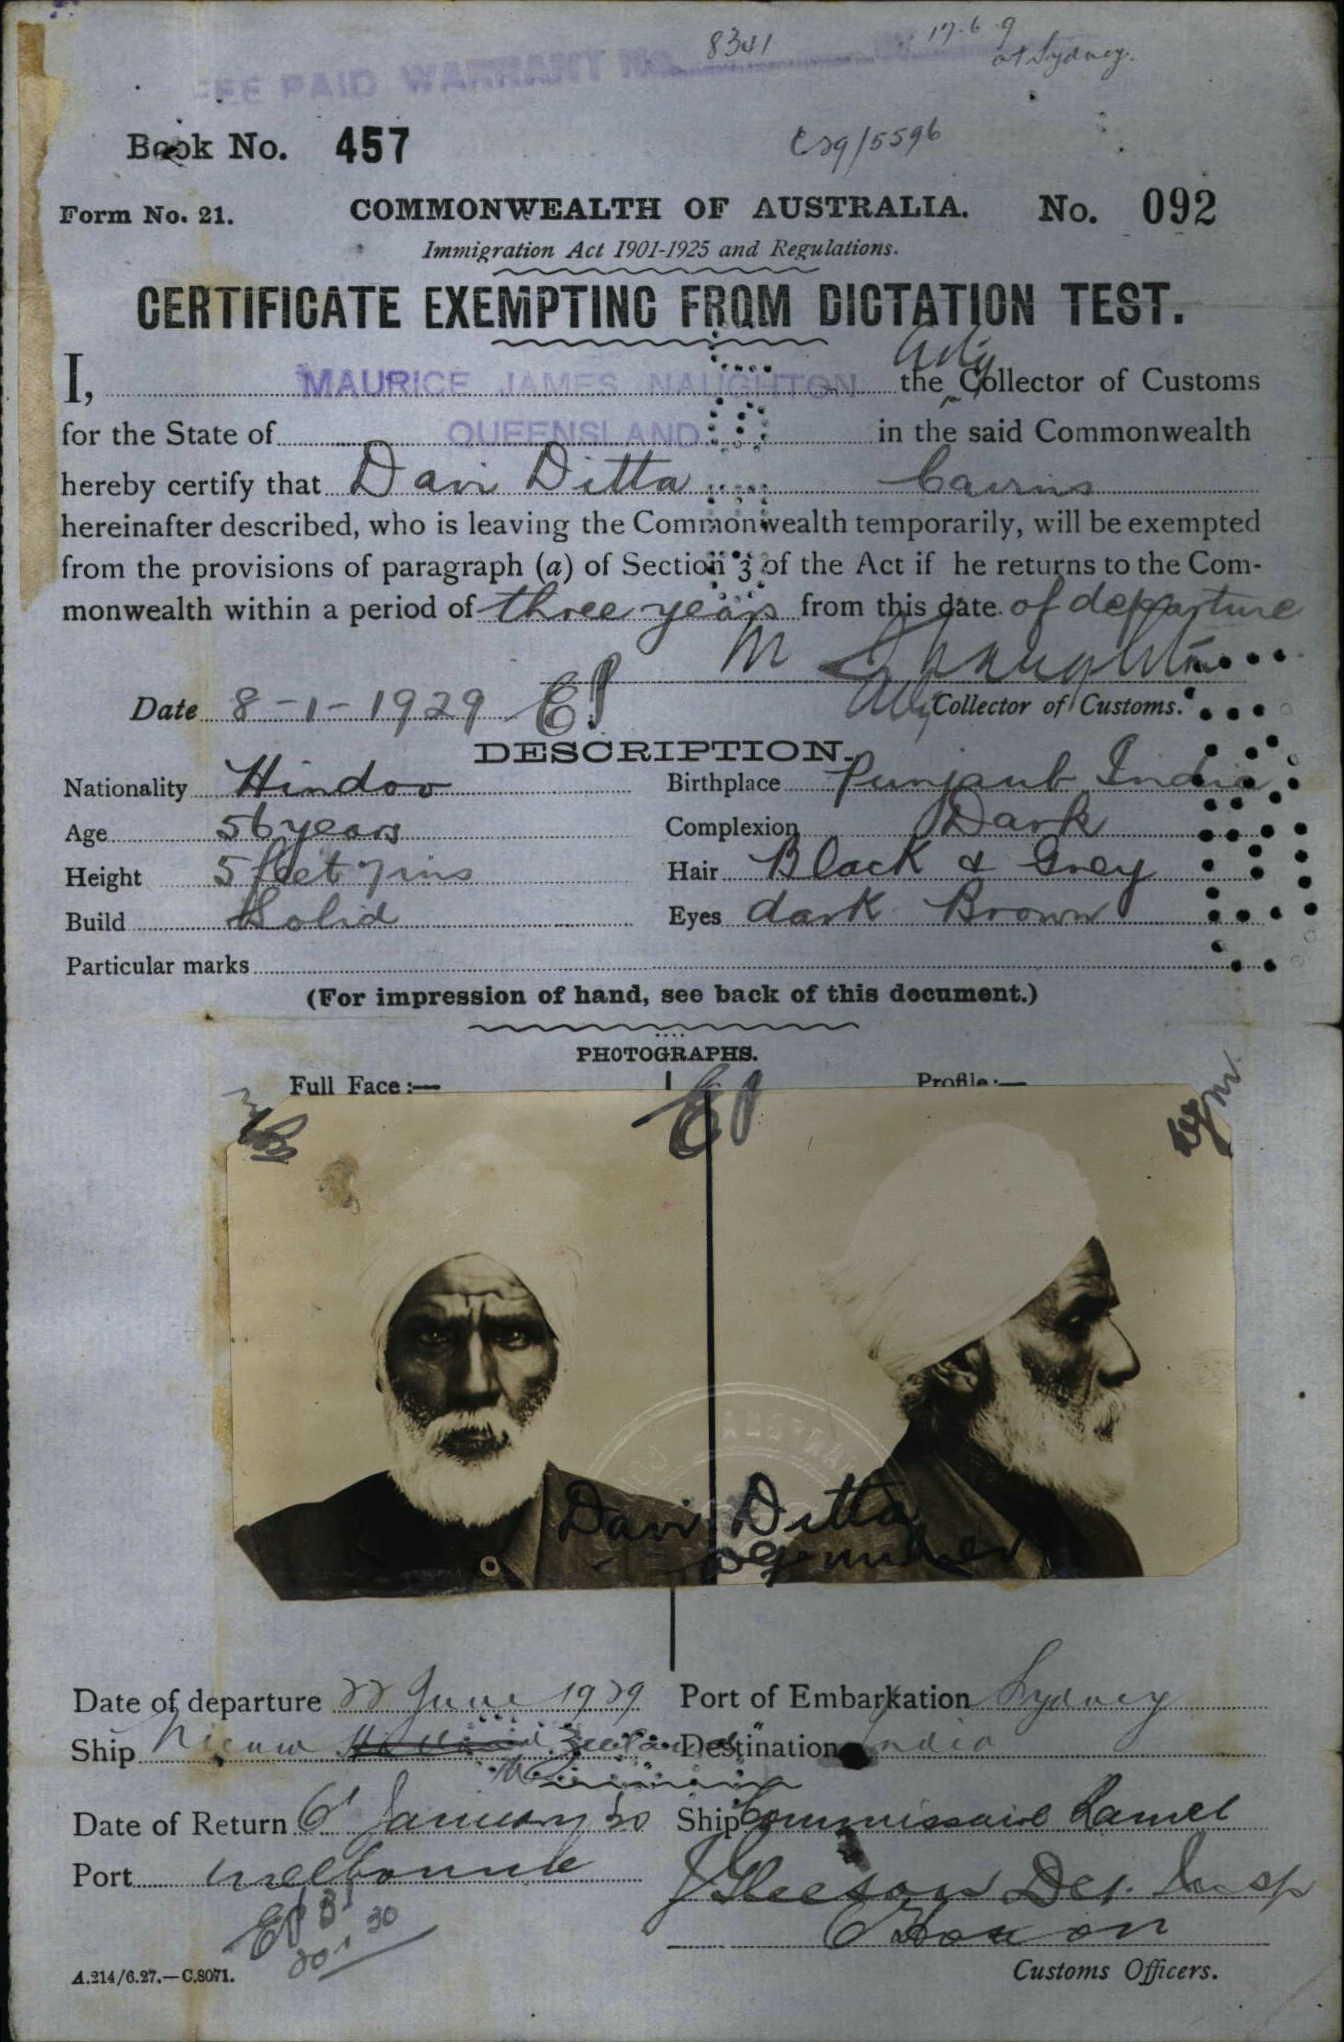 FEE PAID WARRANT No. 8341 17.6.9
at Sydney.
Book No. 457
C29/5596
Form No. 21. COMMONWEALTH OF AUSTRALIA. No. 092
Immigration Act 1901-1925 and Regulations.
CERTIFICATE EXEMPTING FROM DICTATION TEST.
I, MAURICE JAMES NAUGHTON the Actg Collector of Customs
for the State of QUEENSLAND in the said Commonwealth
hereby certify that Davi Ditta Cairns
hereinafter described, who is leaving the Commonwealth temporarily, will be exempted
from the provisions of paragraph (a) of Section 3 of the Act if he returns to the Com-
monwealth within a period of three years from this date of departure
M J Naughton
Date 8-1-1929 Actg Collector of Customs.
DESCRIPTION.
Nationality Hindoo Birthplace Punjaub India
Age 56 years Complexion Dark
Height 5 feet 7 ins Hair Black & Grey
Build Solid Eyes dark Brown
Particular marks
(For impression of hand, see back of this document.)
PHOTOGRAPHS.
Full Face :— Profile :—
Davi Ditta
Date of departure 22 June 1929 Port of Embarkation Sydney
Ship Nieuw Zeeland Destination India
Date of Return 6 January 30 Ship Commissaire Ramel
Port Melbourne J Gleeson Det. Insp
20.1.30
A.214/6.27.—C.8071. Customs Officers.